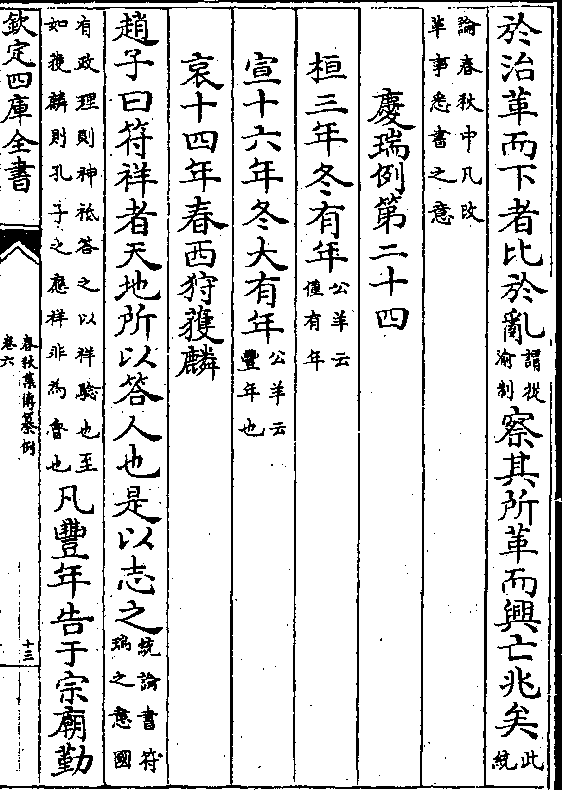 於治革而下者比於亂謂從渝制察其所革而興亡兆矣此統
論春秋中凡改革事悉書之意
慶瑞例第二十四
桓三年冬有年公羊云僅有年
宣十六年冬大有年公羊云豐年也
哀十四年春西狩獲麟
趙子曰符祥者天地所以答人也是以志之統論書符瑞之意國
有政理則神祗答之以祥驗也至如獲麟則孔子之應祥非為魯也凡豐年告于宗廟勤
欽定四庫全書
春秋集傳纂例
卷六
十三